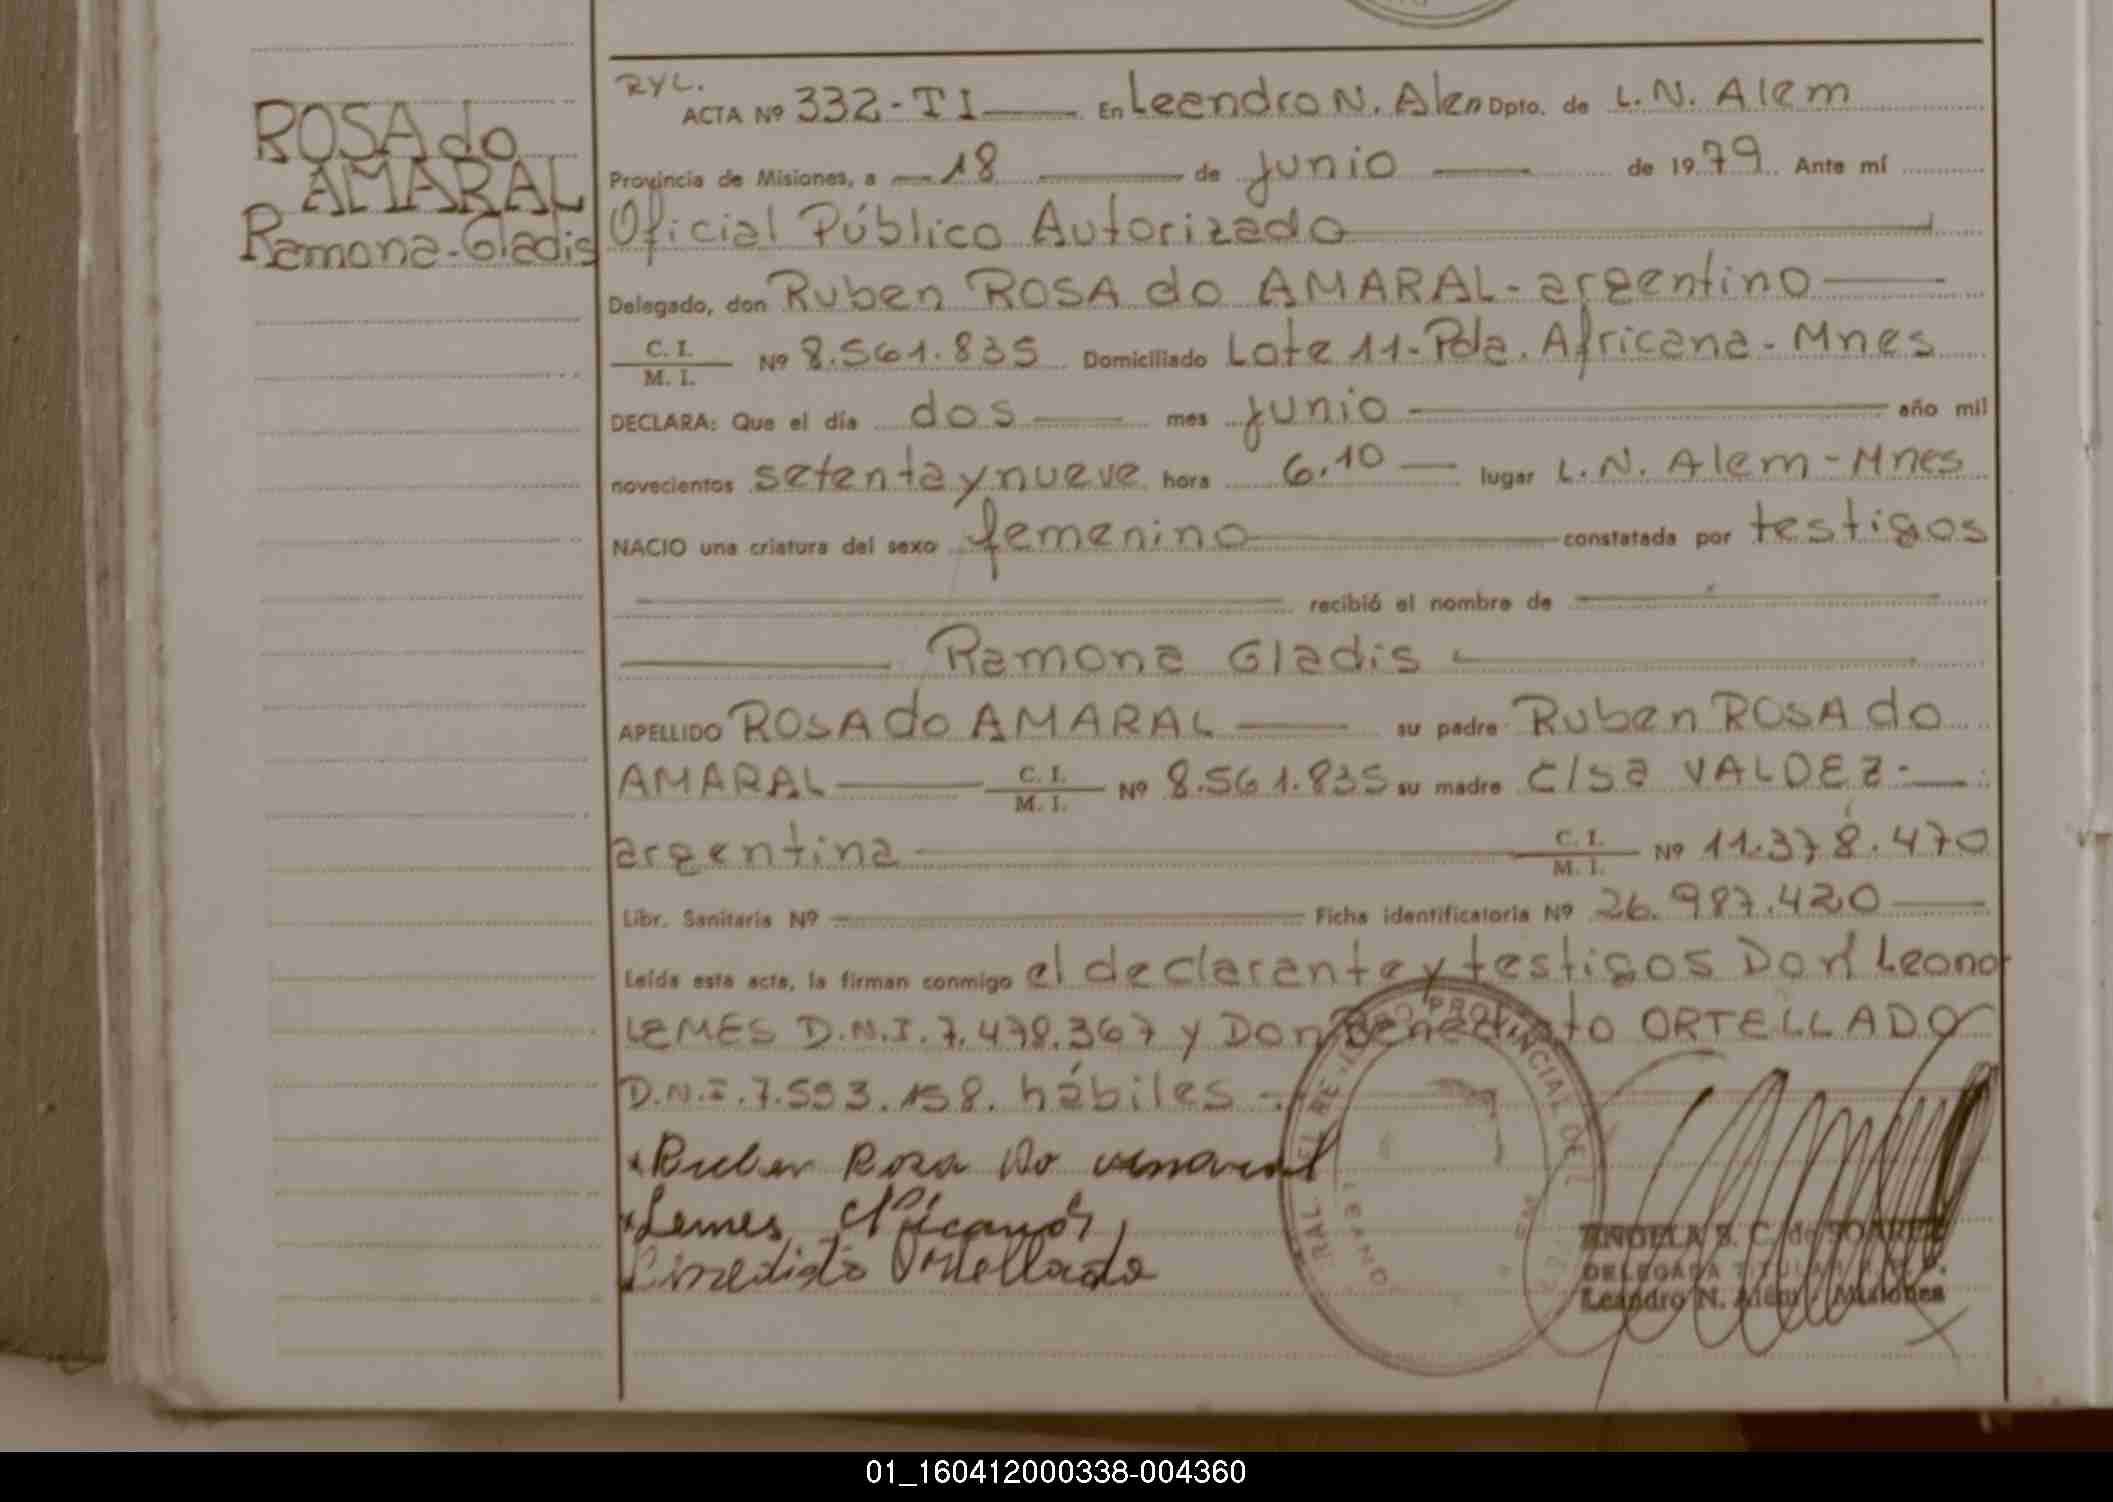 ROSA do
AMARAL
Ramona-Gladis
RYL.
ACTA Nº 332-TI En Leandro N. Alen Dpto. de L. N. Alem
Provincia de Misiones, a 18 de junio de 1979. Ante mí
Oficial Público Autorizado
Delegado, don Ruben ROSA do AMARAL-argentino
C. I.
M. I. Nº 8.561.835 Domiciliado Lote 11-Pda. Africana-Mnes
DECLARA: Que el día dos mes junio año mil
novecientos setenta y nueve hora 6.10 lugar L. N. Alem-Mnes
NACIO una criatura del sexo femenino constatada por testigos
recibió el nombre de
Ramona Gladis
APELLIDO ROSA do AMARAL su padre Ruben ROSA do
AMARAL C. I. M. I. Nº 8.561.835 su madre Elsa VALDEZ-
argentina C. I. M. I. Nº 11.378.470
Libr. Sanitaria Nº Ficha identificatoria Nº 26.987.420
Leída esta acta, la firman conmigo el declarante y testigos Don
LEMES D.N.I. 7.478.367 y Don ORTELLADO
D.N.I. 7.593.158. hábiles-.
Ruben Rosa Do
Lemes Nicanor
Ortellado
PROVINCIAL DE L
Leandro N. Alem - Misiones
01_160412000338-004360